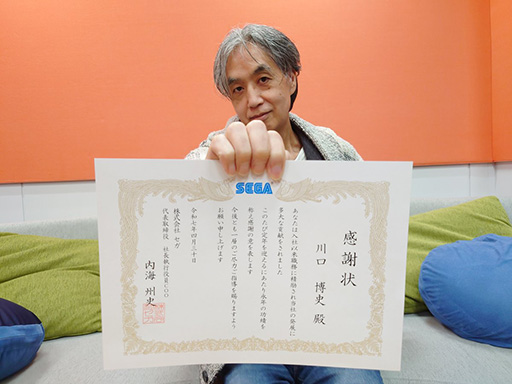 SEGA
感謝状
川口 博史 殿
あなたは入社以来職務に精励され当社の発展に
多大な貢献をされました
このたび定年を迎えられるにあたり永年の功績を
称え感謝の意を表します
今後とも一層のご尽力ご指導を賜りますよう
お願い申し上げます
令和七年四月三十日
株式会社 セガ
代表取締役 社長執行役員COO
内海 州史